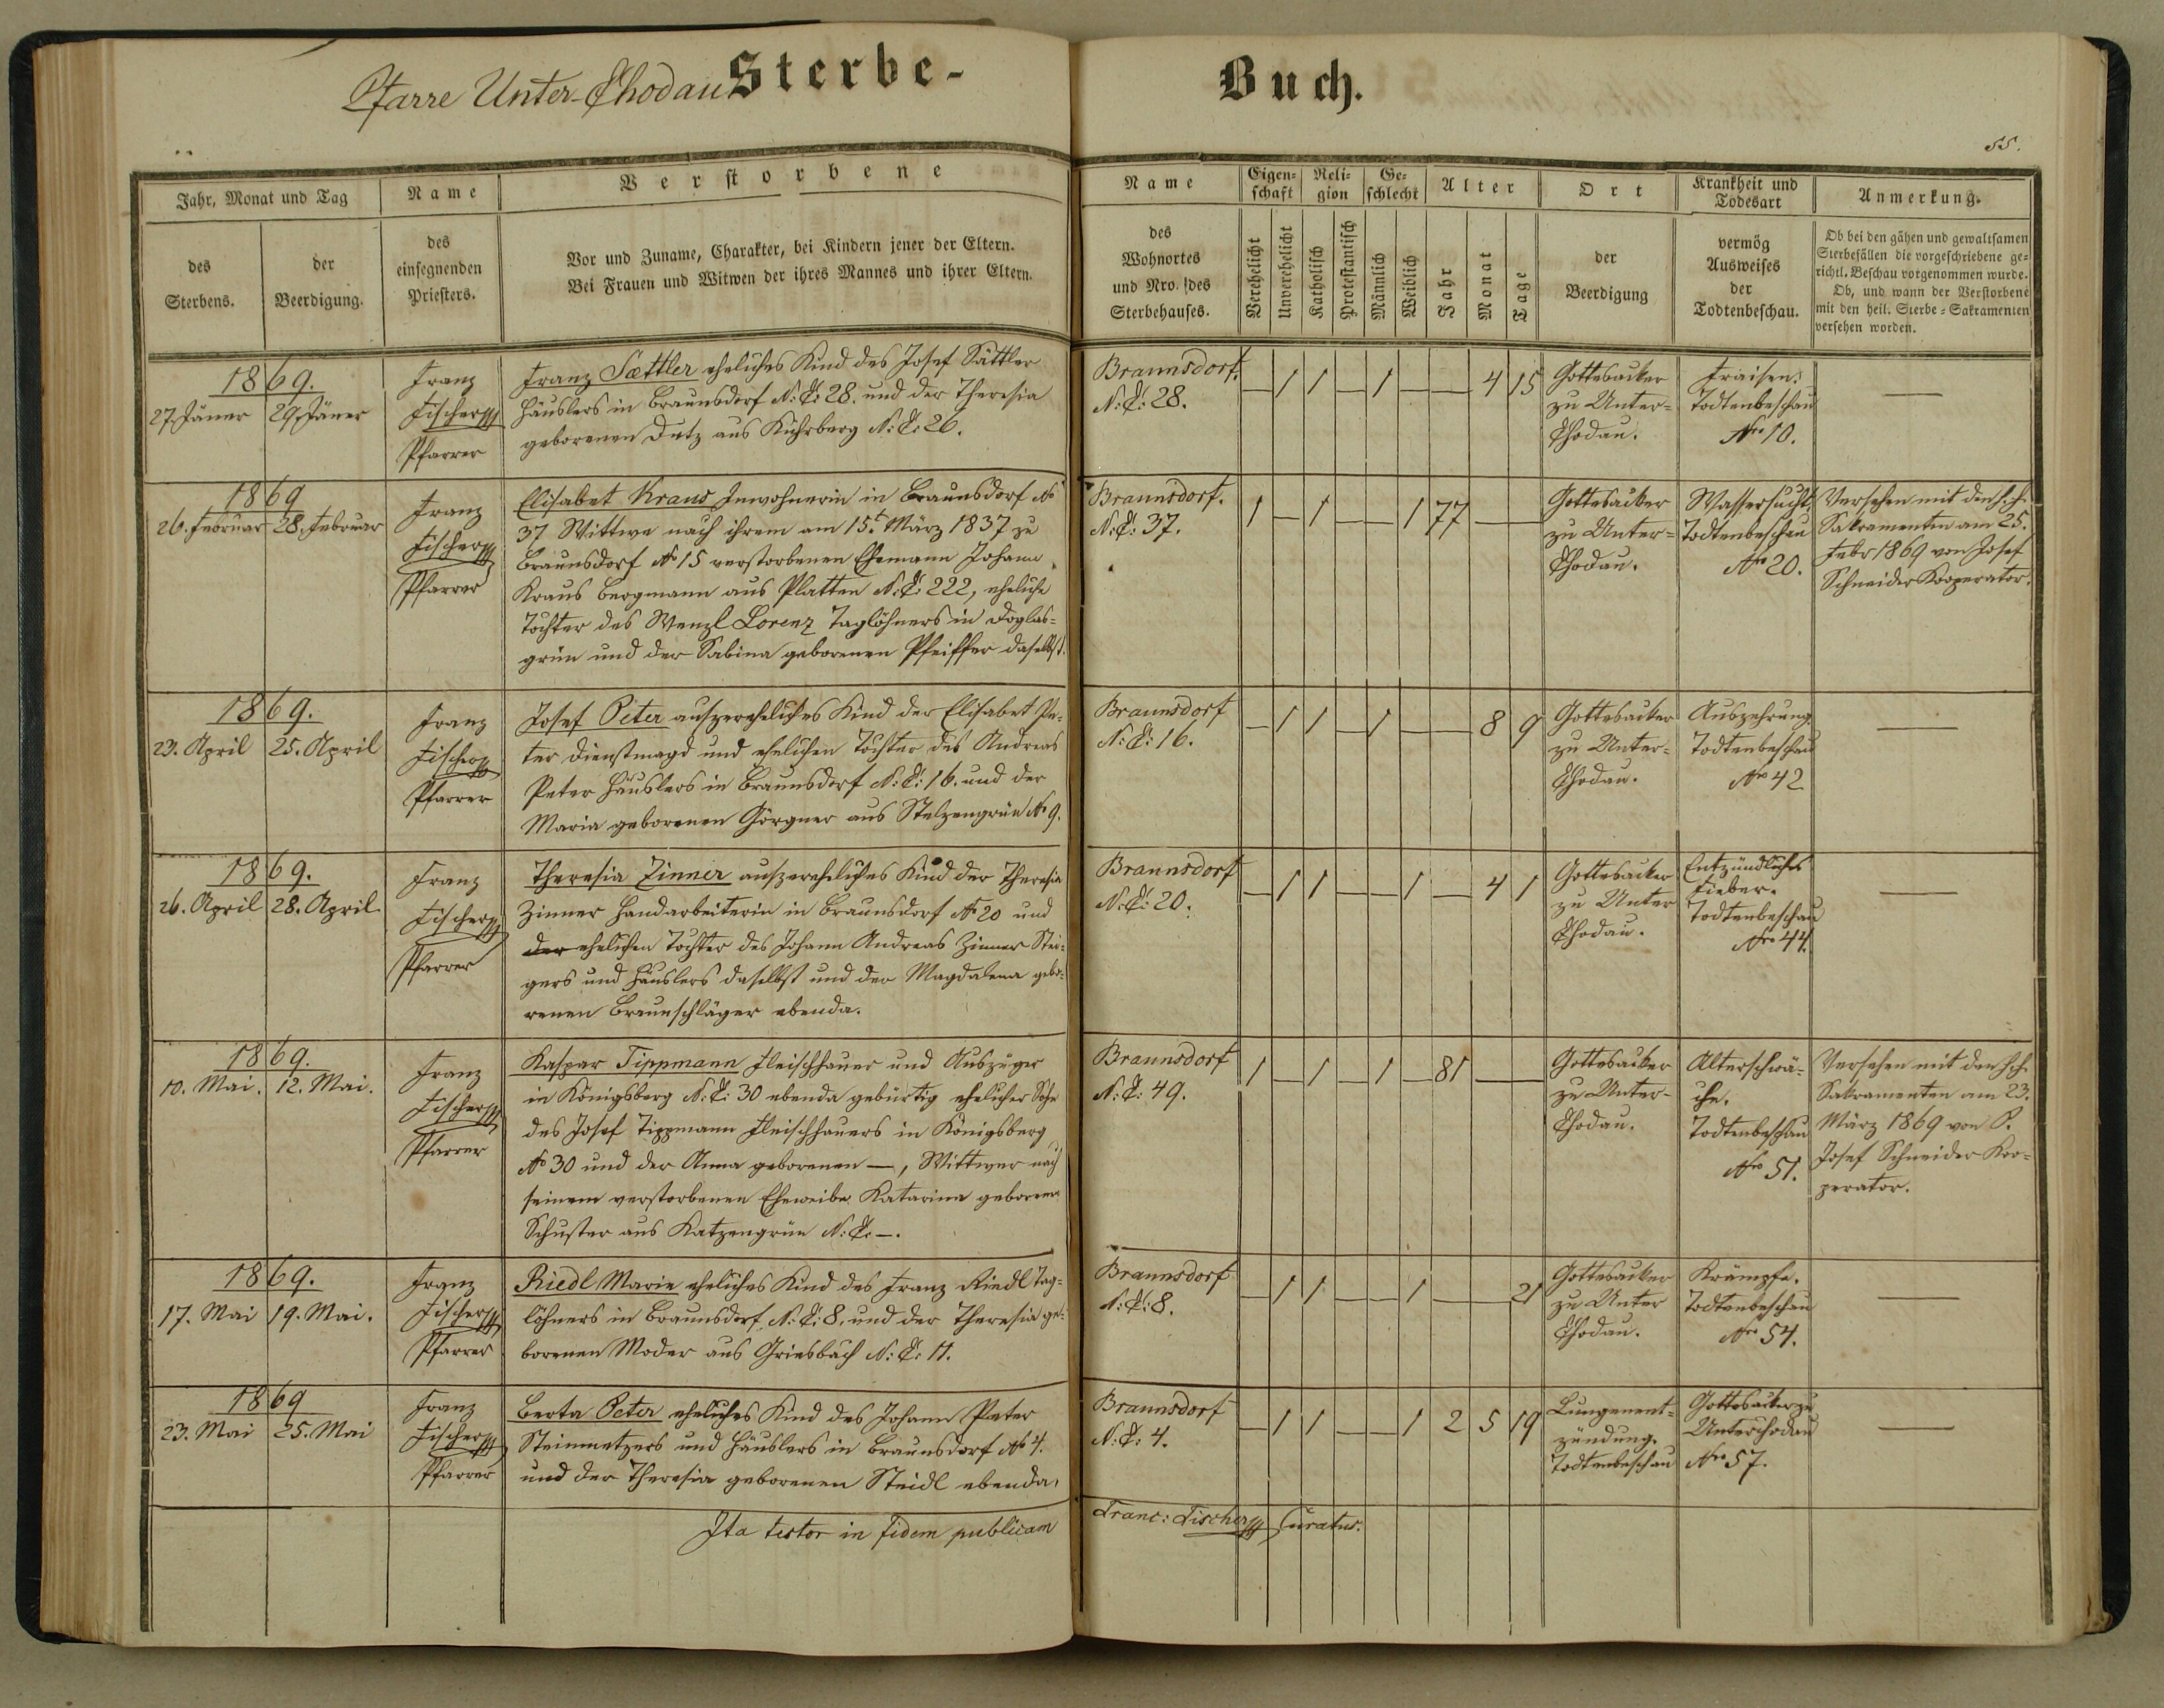 Pfarre Unter-Chodau Sterbe-
Buch.
55.
Jahr, Monat und Tag
des
Sterbens.
der
Beerdigung.
Name
des
einsegnenden
Priesters.
Verstorbene
Vor und Zuname, Charakter, bei Kindern jener der Eltern.
Bei Frauen und Witwen der ihres Mannes und ihrer Eltern.
Name
des
Wohnortes
und Nro. des
Sterbehauses.
Eigen-
schaft
Verehelicht
Unverehelicht
Reli-
gion
Katholisch
Protestantisch
Ge-
schlecht
Männlich
Weiblich
Alter
Jahr
Monat
Tage
Ort
der
Beerdigung
Krankheit und
Todesart
vermög
Ausweises
der
Todtenbeschau.
Anmerkung.
Ob bei den gähen und gewaltsamen
Sterbefällen die vorgeschriebene ge-
richtl. Beschau vorgenommen wurde.
Ob, und wann der Verstorbene
mit den heil. Sterbe-Sakramenten
versehen worden.
1869.
27. Jänner
29. Jäner
Franz
Fischer
Pfarrer
Franz Sættler eheliches Kind des Josef Sättler
Häuslers in Braunsdorf N:C: 28. und der Theresia
geborenen Dutz aus Kührberg N:C: 26.
Braunsdorf.
N:C: 28.
— 1 1 — 1 — — 4 15
Gottesacker
zu Unter-
Chodau.
Fraisen:
Todtenbeschau
Nro 10.
—
1869
26. Februar
28. Februar
Franz
Fischer
Pfarrer
Elisabet Kraus Inwohnerin in Braunsdorf No
37 Wittwe nach ihrem am 15t März 1837 zu
Braunsdorf No 15 verstorbenen Ehemann Johann
Kraus Bergmann aus Platten N:C: 222, eheliche
Tochter des Wenzl Lorenz Taglöhners in Doglas-
grün und der Sabina geborenen Pfeiffer daselbst.
Braunsdorf.
N:C: 37.
1 — 1 — — 1 77 — —
Gottesacker
zu Unter-
Chodau.
Wassersucht,
Todtenbeschau
Nro 20.
Versehen mit den h.h.
Sakramenten am 25.
Febr 1869 von Josef
Schneider Kooperator.
1869.
23. April
25. April
Franz
Fischer
Pfarrer
Josef Peter auszereheliches Kind der Elisabet Pe-
ter Dienstmagd und ehelichen Tochter des Andreas
Peter Häuslers in Braunsdorf N:C: 16. und der
Maria geborenen Görgner aus Stelzengrün No 9.
Braunsdorf
N:C: 16.
— 1 1 — 1 — — 8 9
Gottesacker
zu Unter-
Chodau.
Auszehrung.
Todtenbeschau
Nro 42
—
1869.
26. April
28. April
Franz
Fischer
Pfarrer
Theresia Zinner auszereheliches Kind der Theresia
Zinner Handarbeiterin in Braunsdorf No 20 und
der ehelichen Tochter des Johann Andreas Zinner Stei-
gers und Häuslers daselbst und der Magdalena gebo-
renen Braunschläger ebenda.
Braunsdorf
N:C: 20.
— 1 1 — — 1 — 4 1
Gottesacker
zu Unter
Chodau.
Entzündliches
Fieber.
Todtenbeschau
Nro 44.
—
1869.
10. Mai.
12. Mai.
Franz
Fischer
Pfarrer
Kaspar Tippmann Fleischhauer und Auszüger
in Königsberg N:C: 30 ebenda gebürtig ehelicher Sohn
des Josef Tippmann Fleischhauers in Königsberg
No 30 und der Anna geborenen —, Wittwer nach
seinem verstorbenen Eheweibe Katarina geborene
Schuster aus Katzengrün N:C: —.
Braunsdorf
N:C: 49.
1 — 1 — 1 — 81 — —
Gottesacker
zu Unter-
Chodau.
Alterschwä-
che.
Todtenbeschau
Nro 51.
Versehen mit den h.h.
Sakramenten am 23.
März 1869 von P.
Josef Schneider Koo-
perator.
1869.
17. Mai
19. Mai.
Franz
Fischer
Pfarrer
Riedl Marie eheliches Kind des Franz Riedl Tag-
löhners in Braunsdorf N:C: 8. und der Theresia ge-
borenen Moder aus Griesbach N:C: 11.
Braunsdorf
N:C: 8.
— 1 1 — — 1 — — 21
Gottesacker
zu Unter
Chodau.
Krämpfe.
Todtenbeschau
Nro 54.
—
1869
23. Mai
25. Mai
Franz
Fischer
Pfarrer
Berta Peter eheliches Kind des Johann Peter
Steinmetzers und Häuslers in Braunsdorf No 4.
und der Theresia geborenen Steidl ebenda.
Braunsdorf
N:C: 4.
— 1 1 — — 1 2 5 19
Lungenent-
zündung.
Todtenbeschau
Gottesacker zu
Unterchodau
Nro 57.
—
Ita testor in fidem publicam
Franc: Fischer Curatus.